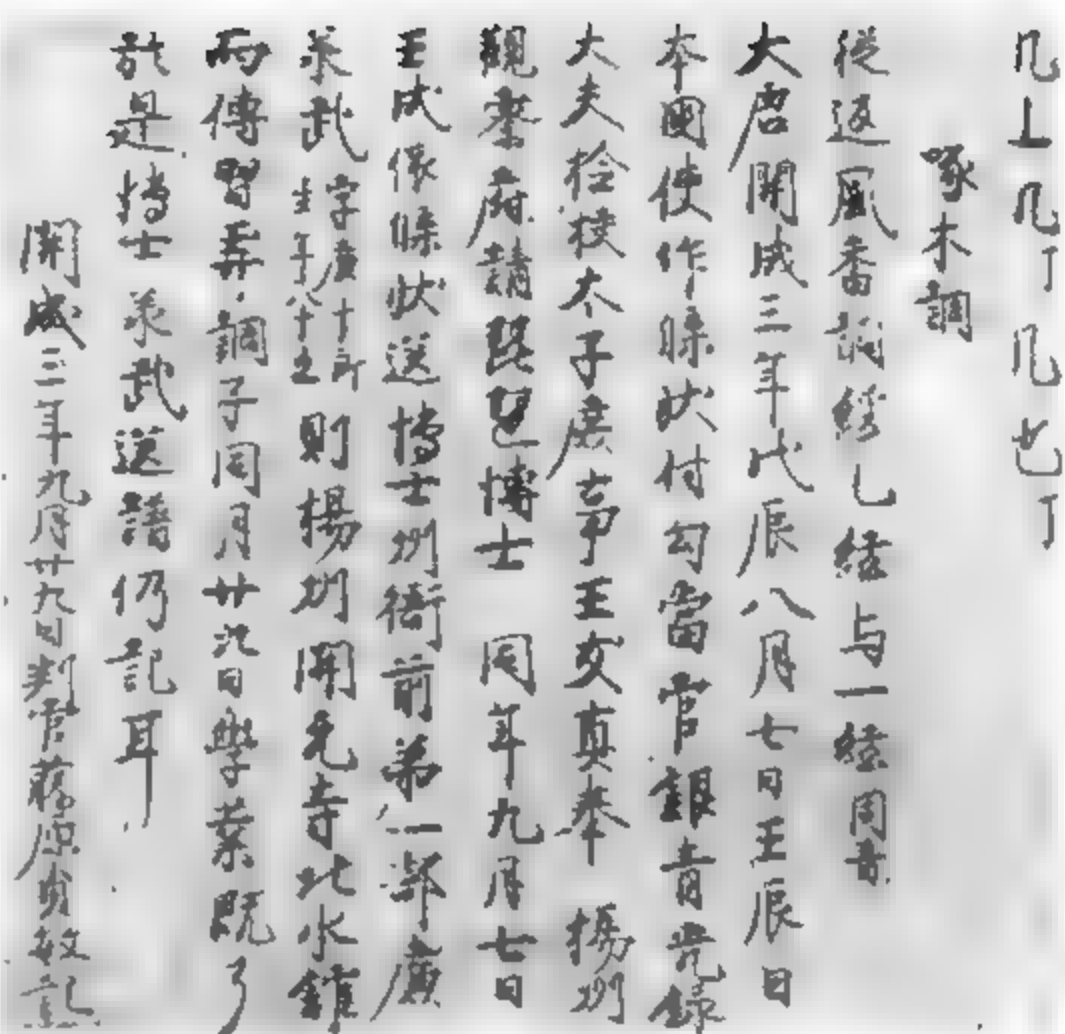 几上几丁几七丁
啄木調
從返風香調緩乙絃与一絃同音
大唐開成三年戊辰八月七日壬辰日
本國使作牒狀付勾當官銀青光祿
大夫檢校太子庶事王友真奉 揚州
觀察府請琵琶博士 同年九月七日
壬戌依牒狀送博士州衙前第一部廉
承武字廉十郎生年八十五則揚州開元寺北水館
而傳習弄調子同月廿九日學業既了
於是博士承武送譜仍記耳
開成三年九月廿九日判官藤原貞敏記